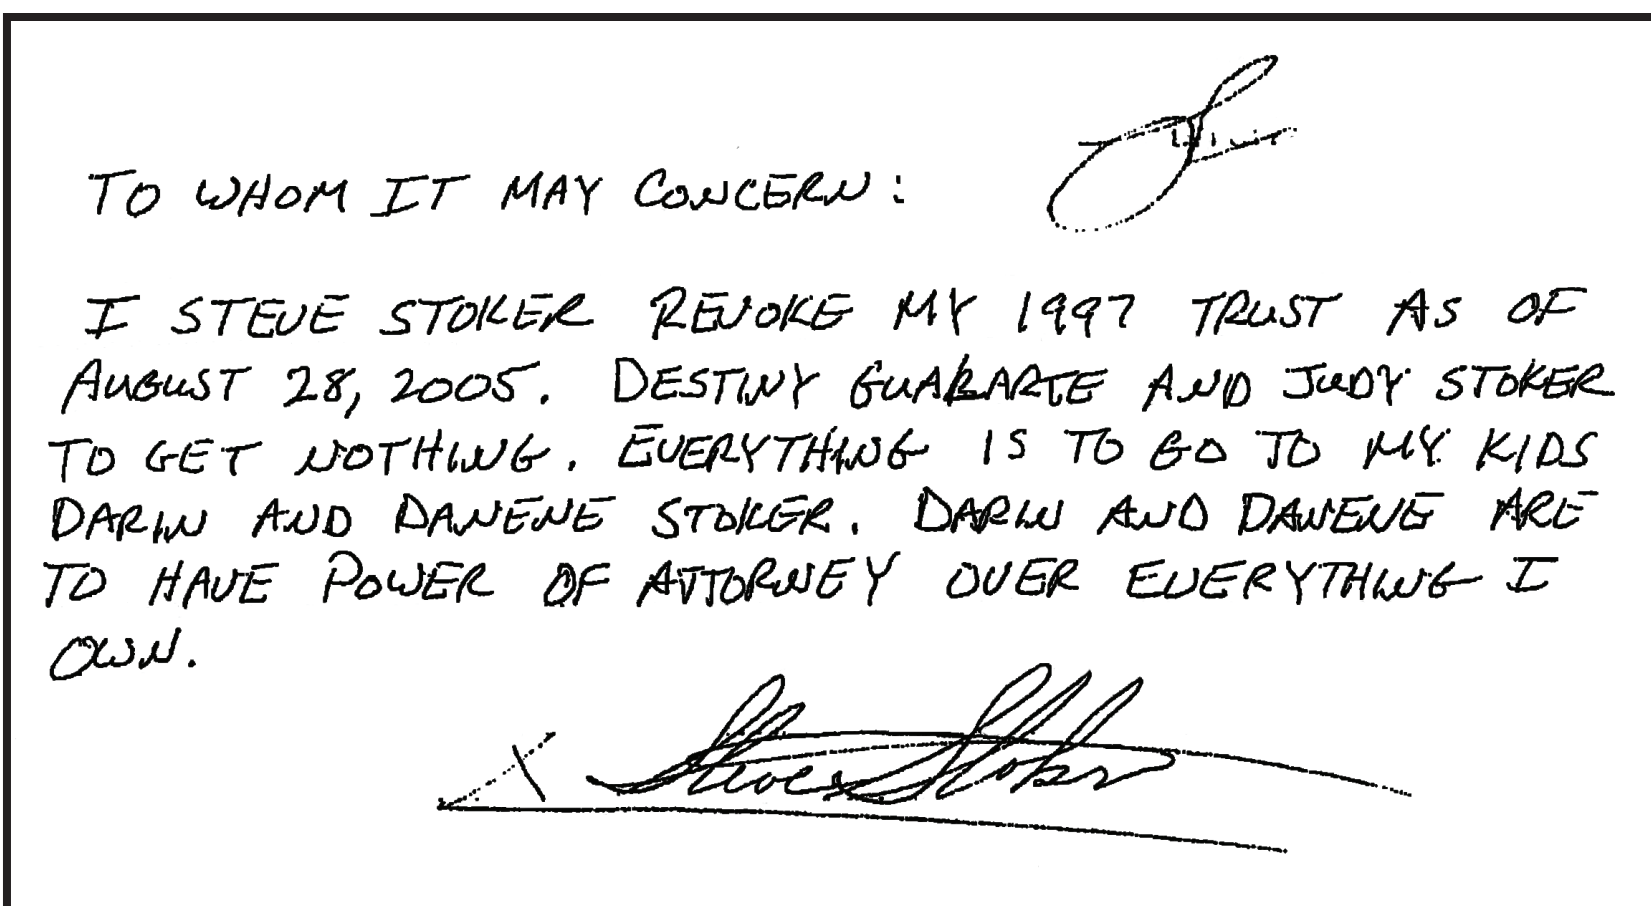 TO WHOM IT MAY CONCERN:
I STEVE STOKER REVOKE MY 1997 TRUST AS OF
AUGUST 28, 2005. DESTINY GUARARTE AND JUDY STOKER
TO GET NOTHING. EVERYTHING IS TO GO TO MY KIDS
DARIN AND DANENE STOKER. DARIN AND DANENE ARE
TO HAVE POWER OF ATTORNEY OVER EVERYTHING I
OWN.
X Steve Stoker